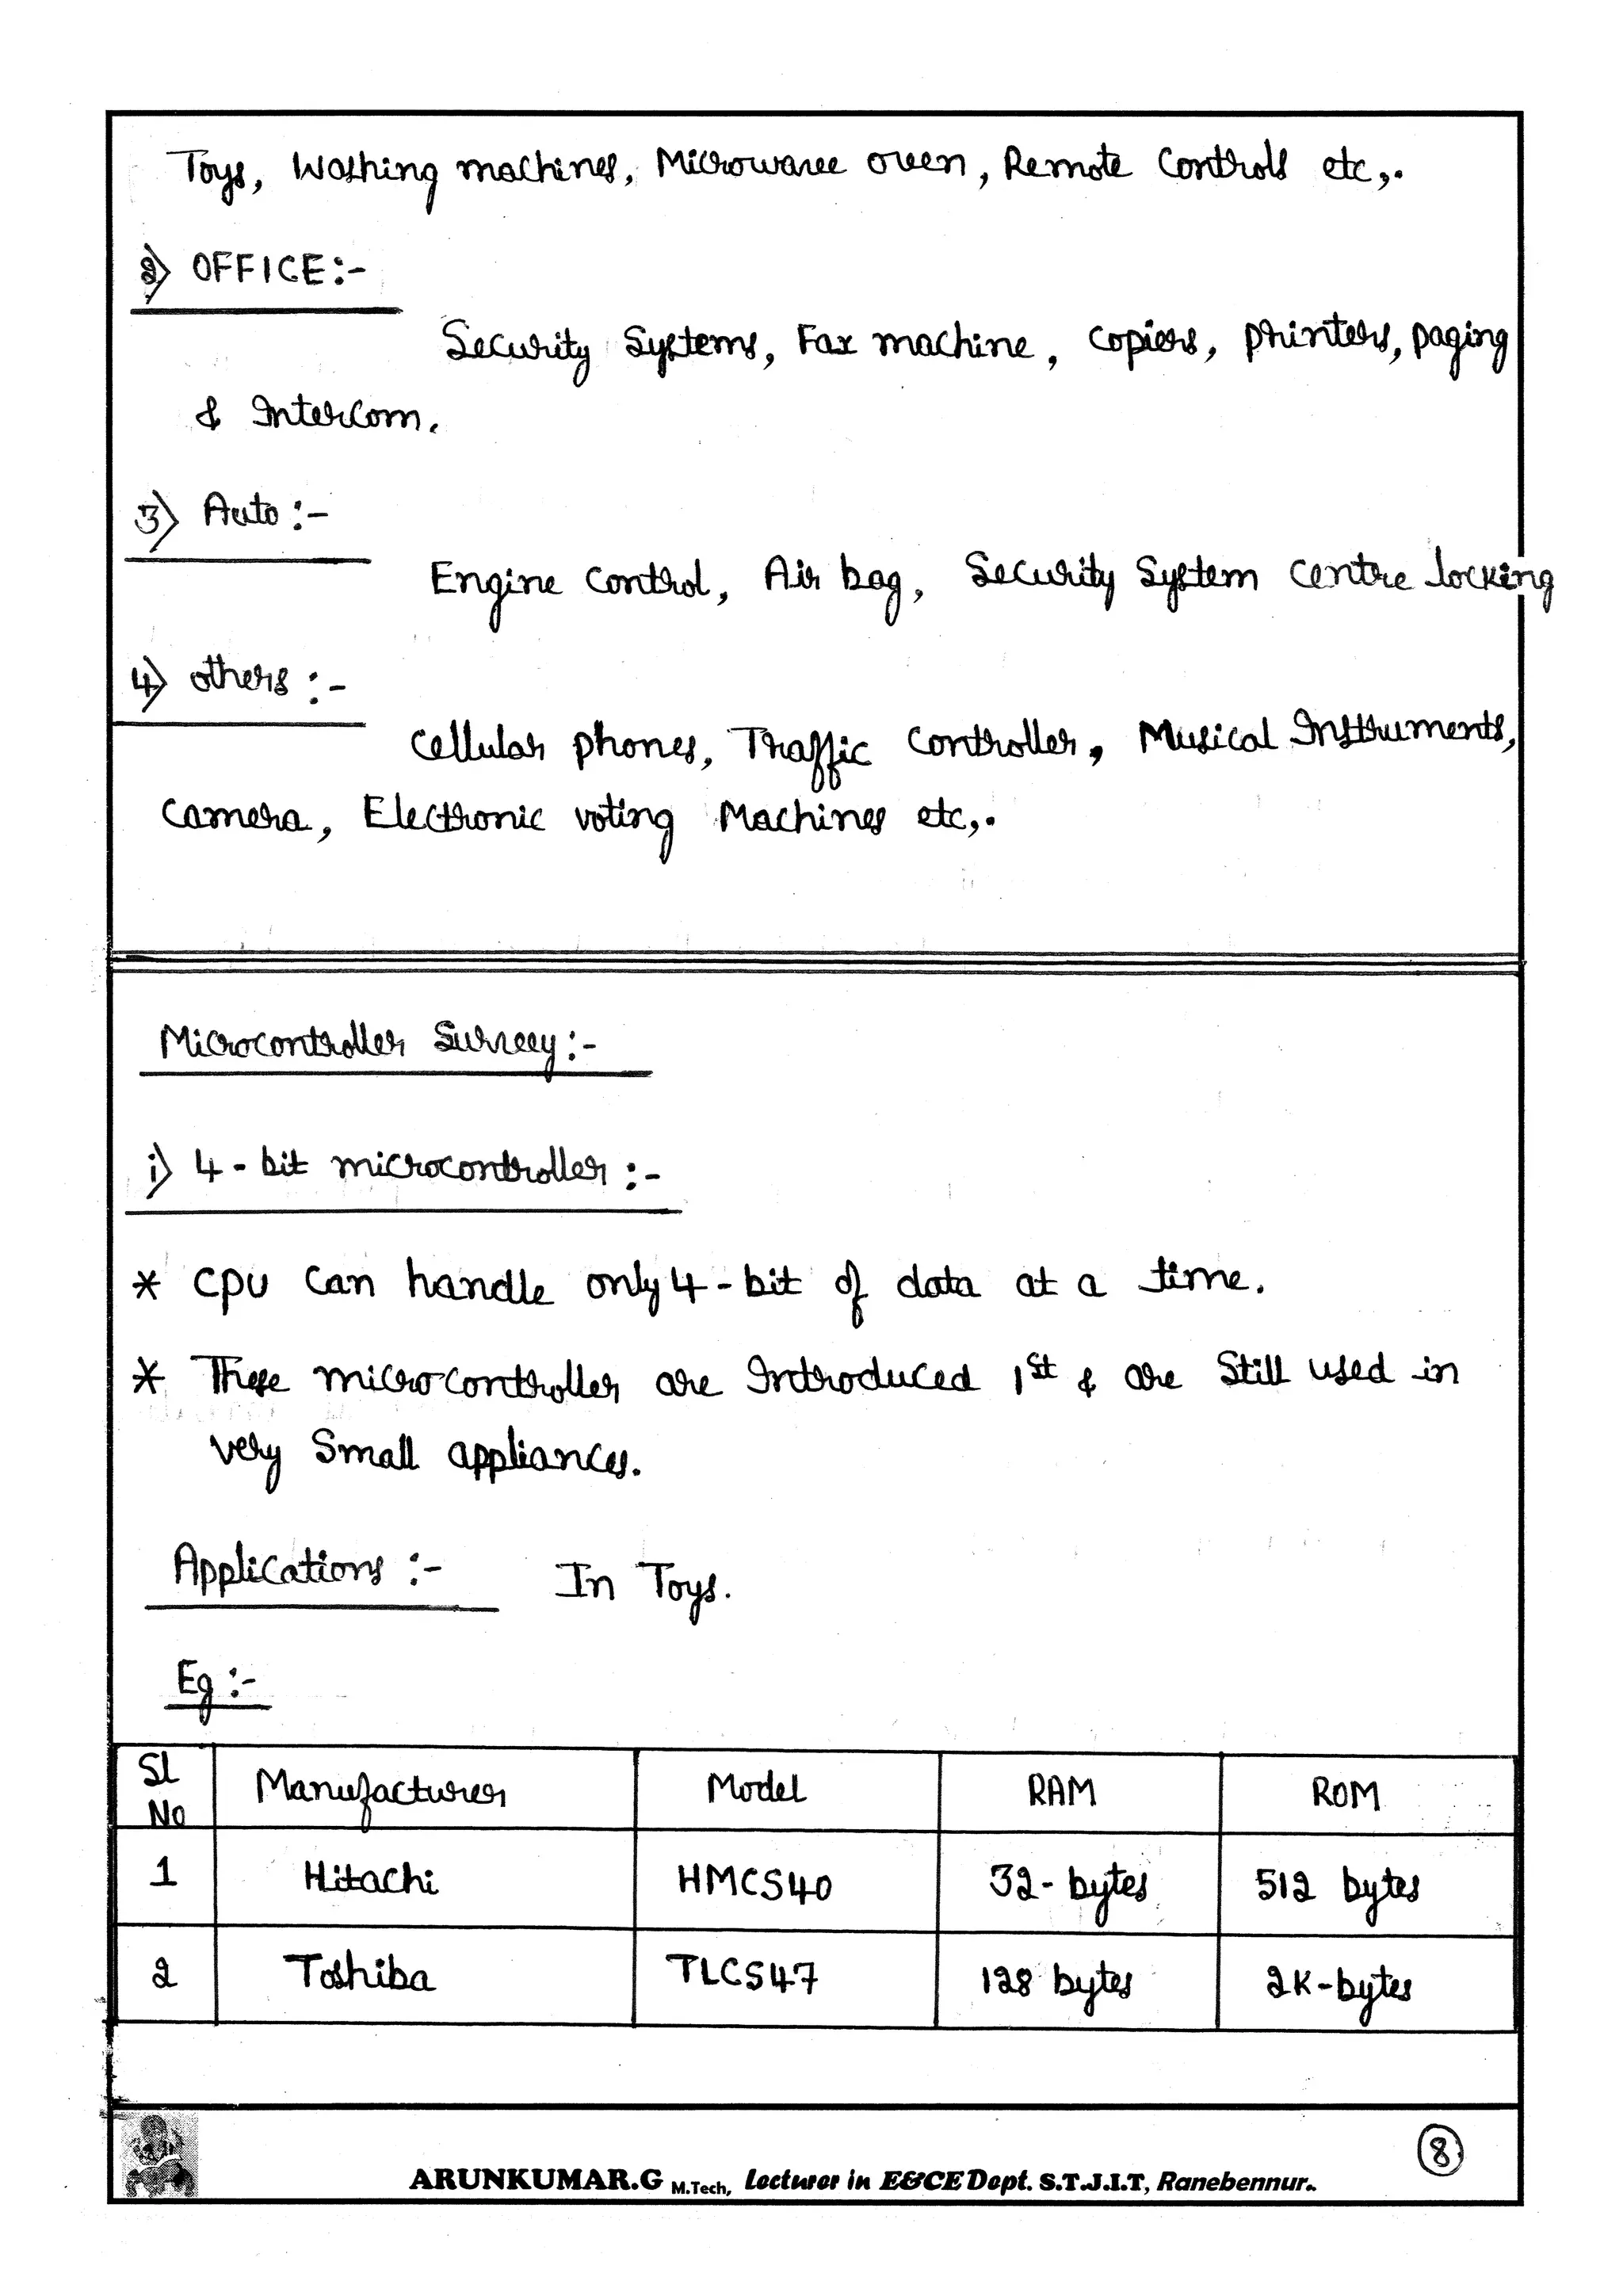 Toys, Washing machines, Microwave oven, Remote Controls etc,.
2) OFFICE:-
Security Systems, Fax machine, Copiers, printers, paging
& Intercom.
3) Auto :-
Engine control, Air bag, Security System Centre locking
4) others :-
Cellular phones, Traffic Controller, Musical Instruments,
Camera, Electronic voting Machines etc,.
Microcontroller Survey:-
i) 4-bit microcontroller :-
* CPU Can handle only 4-bit of data at a time.
* These microcontroller are Introduced 1st & are Still used in
very Small appliances.
Applications :- In Toys.
Eg :-
Sl No Manufacturer Model RAM ROM
1 Hitachi HMCS40 32-bytes 512 bytes
2 Toshiba TLCS47 128 bytes 2K-bytes
8
ARUNKUMAR.G M.Tech, Lecturer in E&CE Dept. S.T.J.I.T, Ranebennur..